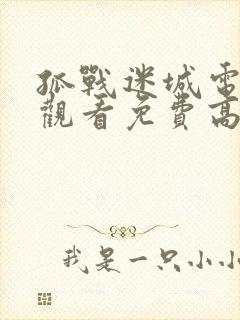 孤戰迷城電
觀看免費高
我是一只小小